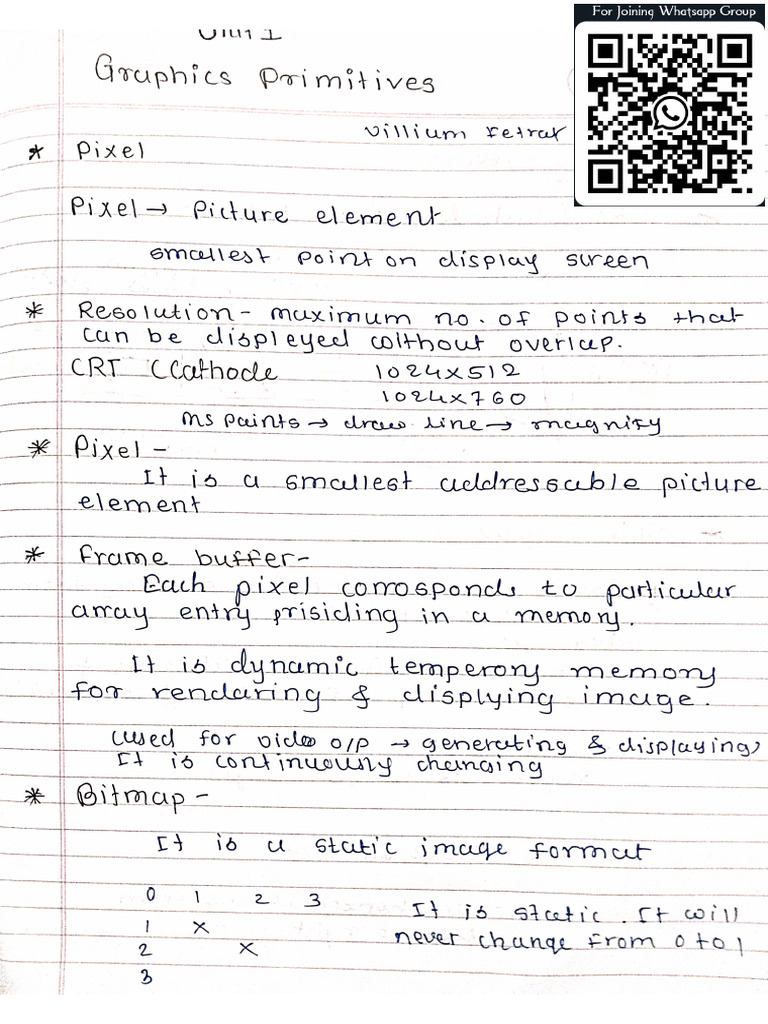 For Joining Whatsapp Group
Unit 1
Graphics Primitives
Villium Fetrat
* Pixel
Pixel → Picture element
smallest point on display screen
* Resolution - maximum no. of points that
can be displeyed without overlap.
CRT (Cathode 1024x512
1024x760
MS paints → draw line → magnify
* Pixel -
It is a smallest addressable picture
element
* Frame buffer-
Each pixel corrosponds to particular
array entry prisiding in a memory.
It is dynamic temperory memory
for rendaring & displying image.
(used for video o/p → generating & displaying)
It is continuously changing
* Bitmap -
It is a static image format
0 1 2 3
It is static. It will
1 x
never change from 0 to 1
2 x
3